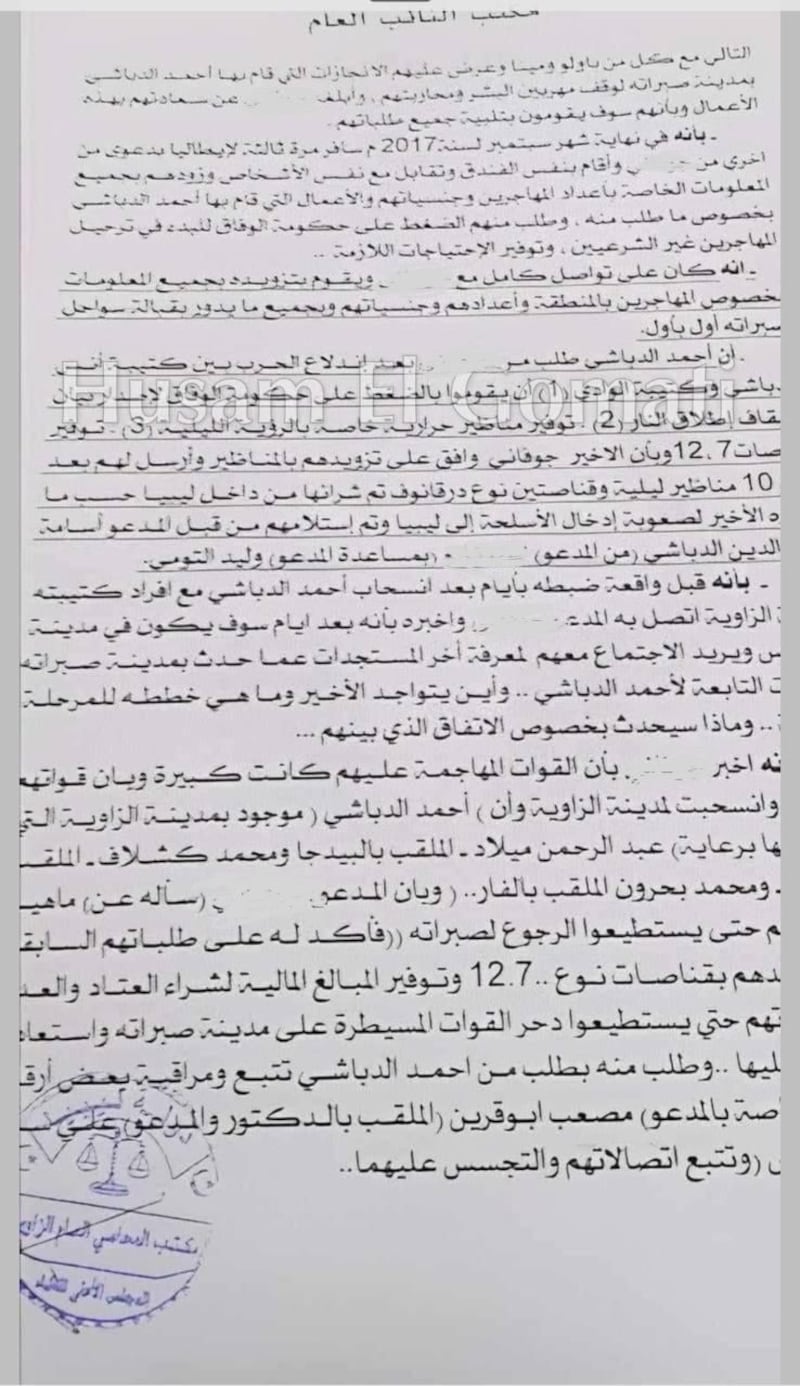 مكتب النائب العام
التالي مع كل من باولو ومينا وعرض عليهم الانجازات التي قام بها أحمد الدباشي
بمدينة صبراته لوقف مهربين البشر ومحاربتهم ، وأبلغه عن سعادتهم بهذه
الأعمال وبأنهم سوف يقومون بتلبية جميع طلباتهم.
ـ بأنه في نهاية شهر سبتمبر لسنة 2017 م سافر مرة ثالثة لإيطاليا بدعوى من
اخري من وأقام بنفس الفندق وتقابل مع نفس الأشخاص وزودهم بجميع
المعلومات الخاصة بأعداد المهاجرين وجنسياتهم والأعمال التي قام بها أحمد الدباشي
بخصوص ما طلب منه ، وطلب منهم الضغط على حكومة الوفاق للبدء في ترحيل
المهاجرين غير الشرعيين ، وتوفير الإحتياجات اللازمة ..
ـ انه كان على تواصل كامل مع ويقوم بتزويده بجميع المعلومات
خصوص المهاجرين بالمنطقة وأعدادهم وجنسياتهم وبجميع ما يدور بقبالة سواحل
سبراته أول بأول.
ـ أن أحمد الدباشي طلب من بعد إندلاع الحرب بين كتيبة أنس
دباشي وكتيبة الوادي (1) أن يقوموا بالضغط على حكومة الوفاق لإصدار بيان
Husam El Gomati
قاف إطلاق النار (2) . توفير مناظير حرارية خاصة بالرؤية الليلية (3) . توفير
صات 12،7 وبأن الاخير جوفاني وافق على تزويدهم بالمناظير وأرسل لهم بعد
10 مناظير ليلية وقناصتين نوع درقانوف تم شرائها من داخل ليبيا حسب ما
ه الأخير لصعوبة إدخال الأسلحة إلى ليبيا وتم إستلامهم من قبل المدعو أسامة
الدين الدباشي (من المدعو) (بمساعدة المدعو) وليد التومي.
ـ بأنه قبل واقعة ضبطه بأيام بعد انسحاب أحمد الدباشي مع افراد كتيبته
ة الزاوية اتصل به المدعو واخبره بأنه بعد ايام سوف يكون في مدينة
س ويريد الاجتماع معهم لمعرفة أخر المستجدات عما حدث بمدينة صبراته
ت التابعة لأحمد الدباشي .. وأين يتواجد الأخير وما هي خططه للمرحلة
.. وماذا سيحدث بخصوص الاتفاق الذي بينهم ...
نه اخبر بأن القوات المهاجمة عليهم كانت كبيرة وبان قواتهم
وانسحبت لمدينة الزاوية وأن ) أحمد الدباشي ( موجود بمدينة الزاوية التي
ها برعاية) عبد الرحمن ميلاد ـ الملقب بالبيدجا ومحمد كشلاف ـ الملقب
ـ ومحمد بحرون الملقب بالفار.. ( وبان المدعو (سأله عن) ماهي
م حتى يستطيعوا الرجوع لصبراته ((فأكد له على طلباتهم السابق
دهم بقناصات نوع ..12.7 وتوفير المبالغ المالية لشراء العتاد والعد
تهم حتي يستطيعوا دحر القوات المسيطرة على مدينة صبراته واستعاد
ليها ..وطلب منه بطلب من احمد الدباشي تتبع ومراقبة بعض أرق
اصة بالمدعو) مصعب ابوقرين (الملقب بالدكتور والمدعو) علي
(وتتبع اتصالاتهم والتجسس عليهما..
مكتب المحامي العام الزاوية